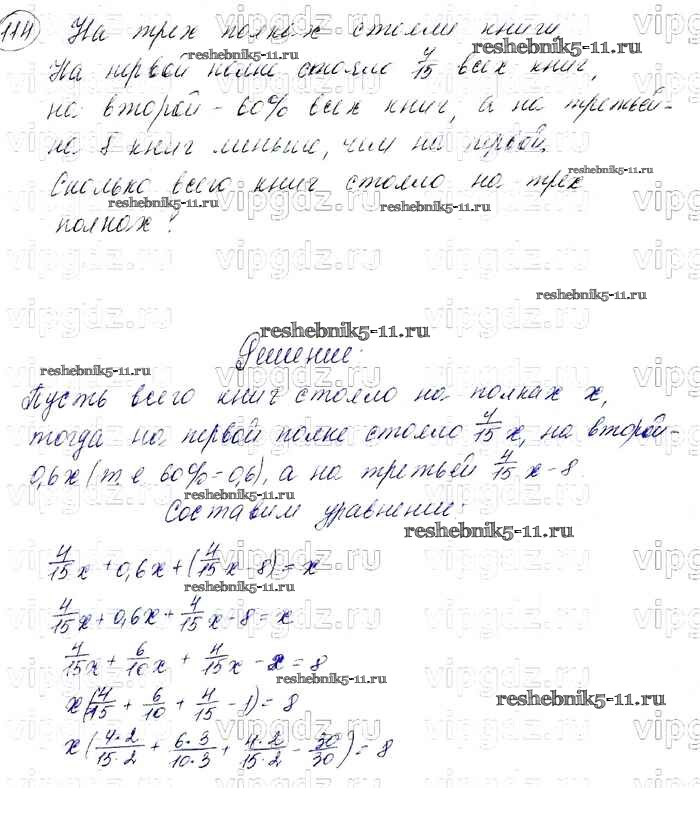 114 На трех полках стояли книги.
На первой полке стояло 4/15 всех книг,
на второй - 60% всех книг, а на третьей -
на 8 книг меньше, чем на первой.
Сколько всего книг стояло на трех
полках?
Решение:
Пусть всего книг стояло на полках x,
тогда на первой полке стояло 4/15 x, на второй -
0,6x (т.е 60% = 0,6), а на третьей 4/15 x - 8
Составим уравнение:
4/15 x + 0,6x + (4/15 x - 8) = x
4/15 x + 0,6x + 4/15 x - 8 = x
4/15 x + 6/10 x + 4/15 x - x = 8
x(4/15 + 6/10 + 4/15 - 1) = 8
x(4·2/15·2 + 6·3/10·3 + 4·2/15·2 - 30/30) = 8
reshebnik5-11.ru
vipgdz.ru